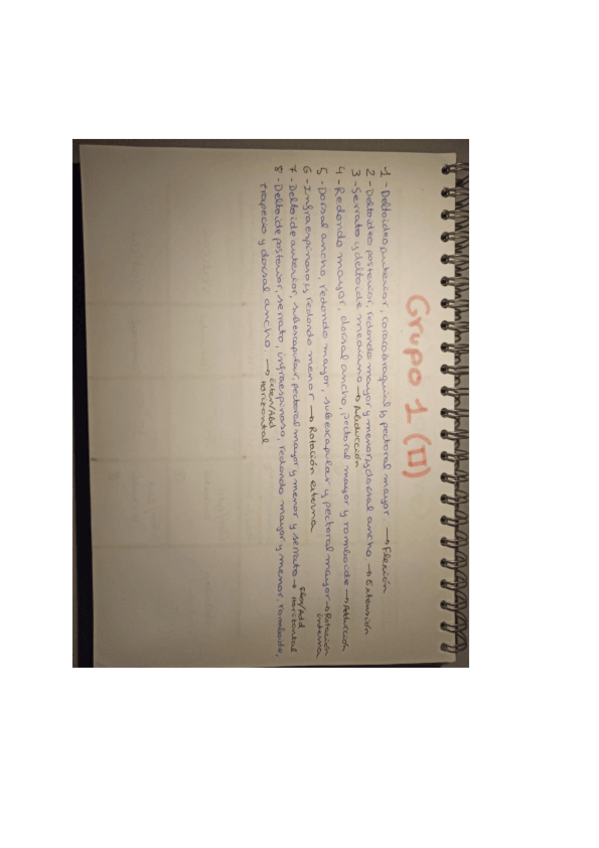 Grupo 1 (II)
1 - Deltoideo anterior, coracobraquial y pectoral mayor → Flexión
2 - Deltoideo posterior, redondo mayor y menor y dorsal ancho → Extensión
3 - Serrato y deltoide mediano → Abducción
4 - Redondo mayor, dorsal ancho, pectoral mayor y romboide → Adducción
5 - Dorsal ancho, redondo mayor, subescapular y pectoral mayor → Rotación interna
6 - Infraespinoso y redondo menor → Rotación externa
7 - Deltoide anterior, subescapular, pectoral mayor y menor y serrato → Flex/Add Horizontal
8 - Deltoide posterior, serrato, infraespinoso, redondo mayor y menor, romboide,
trapecio y dorsal ancho. → Exten/Abd Horizontal